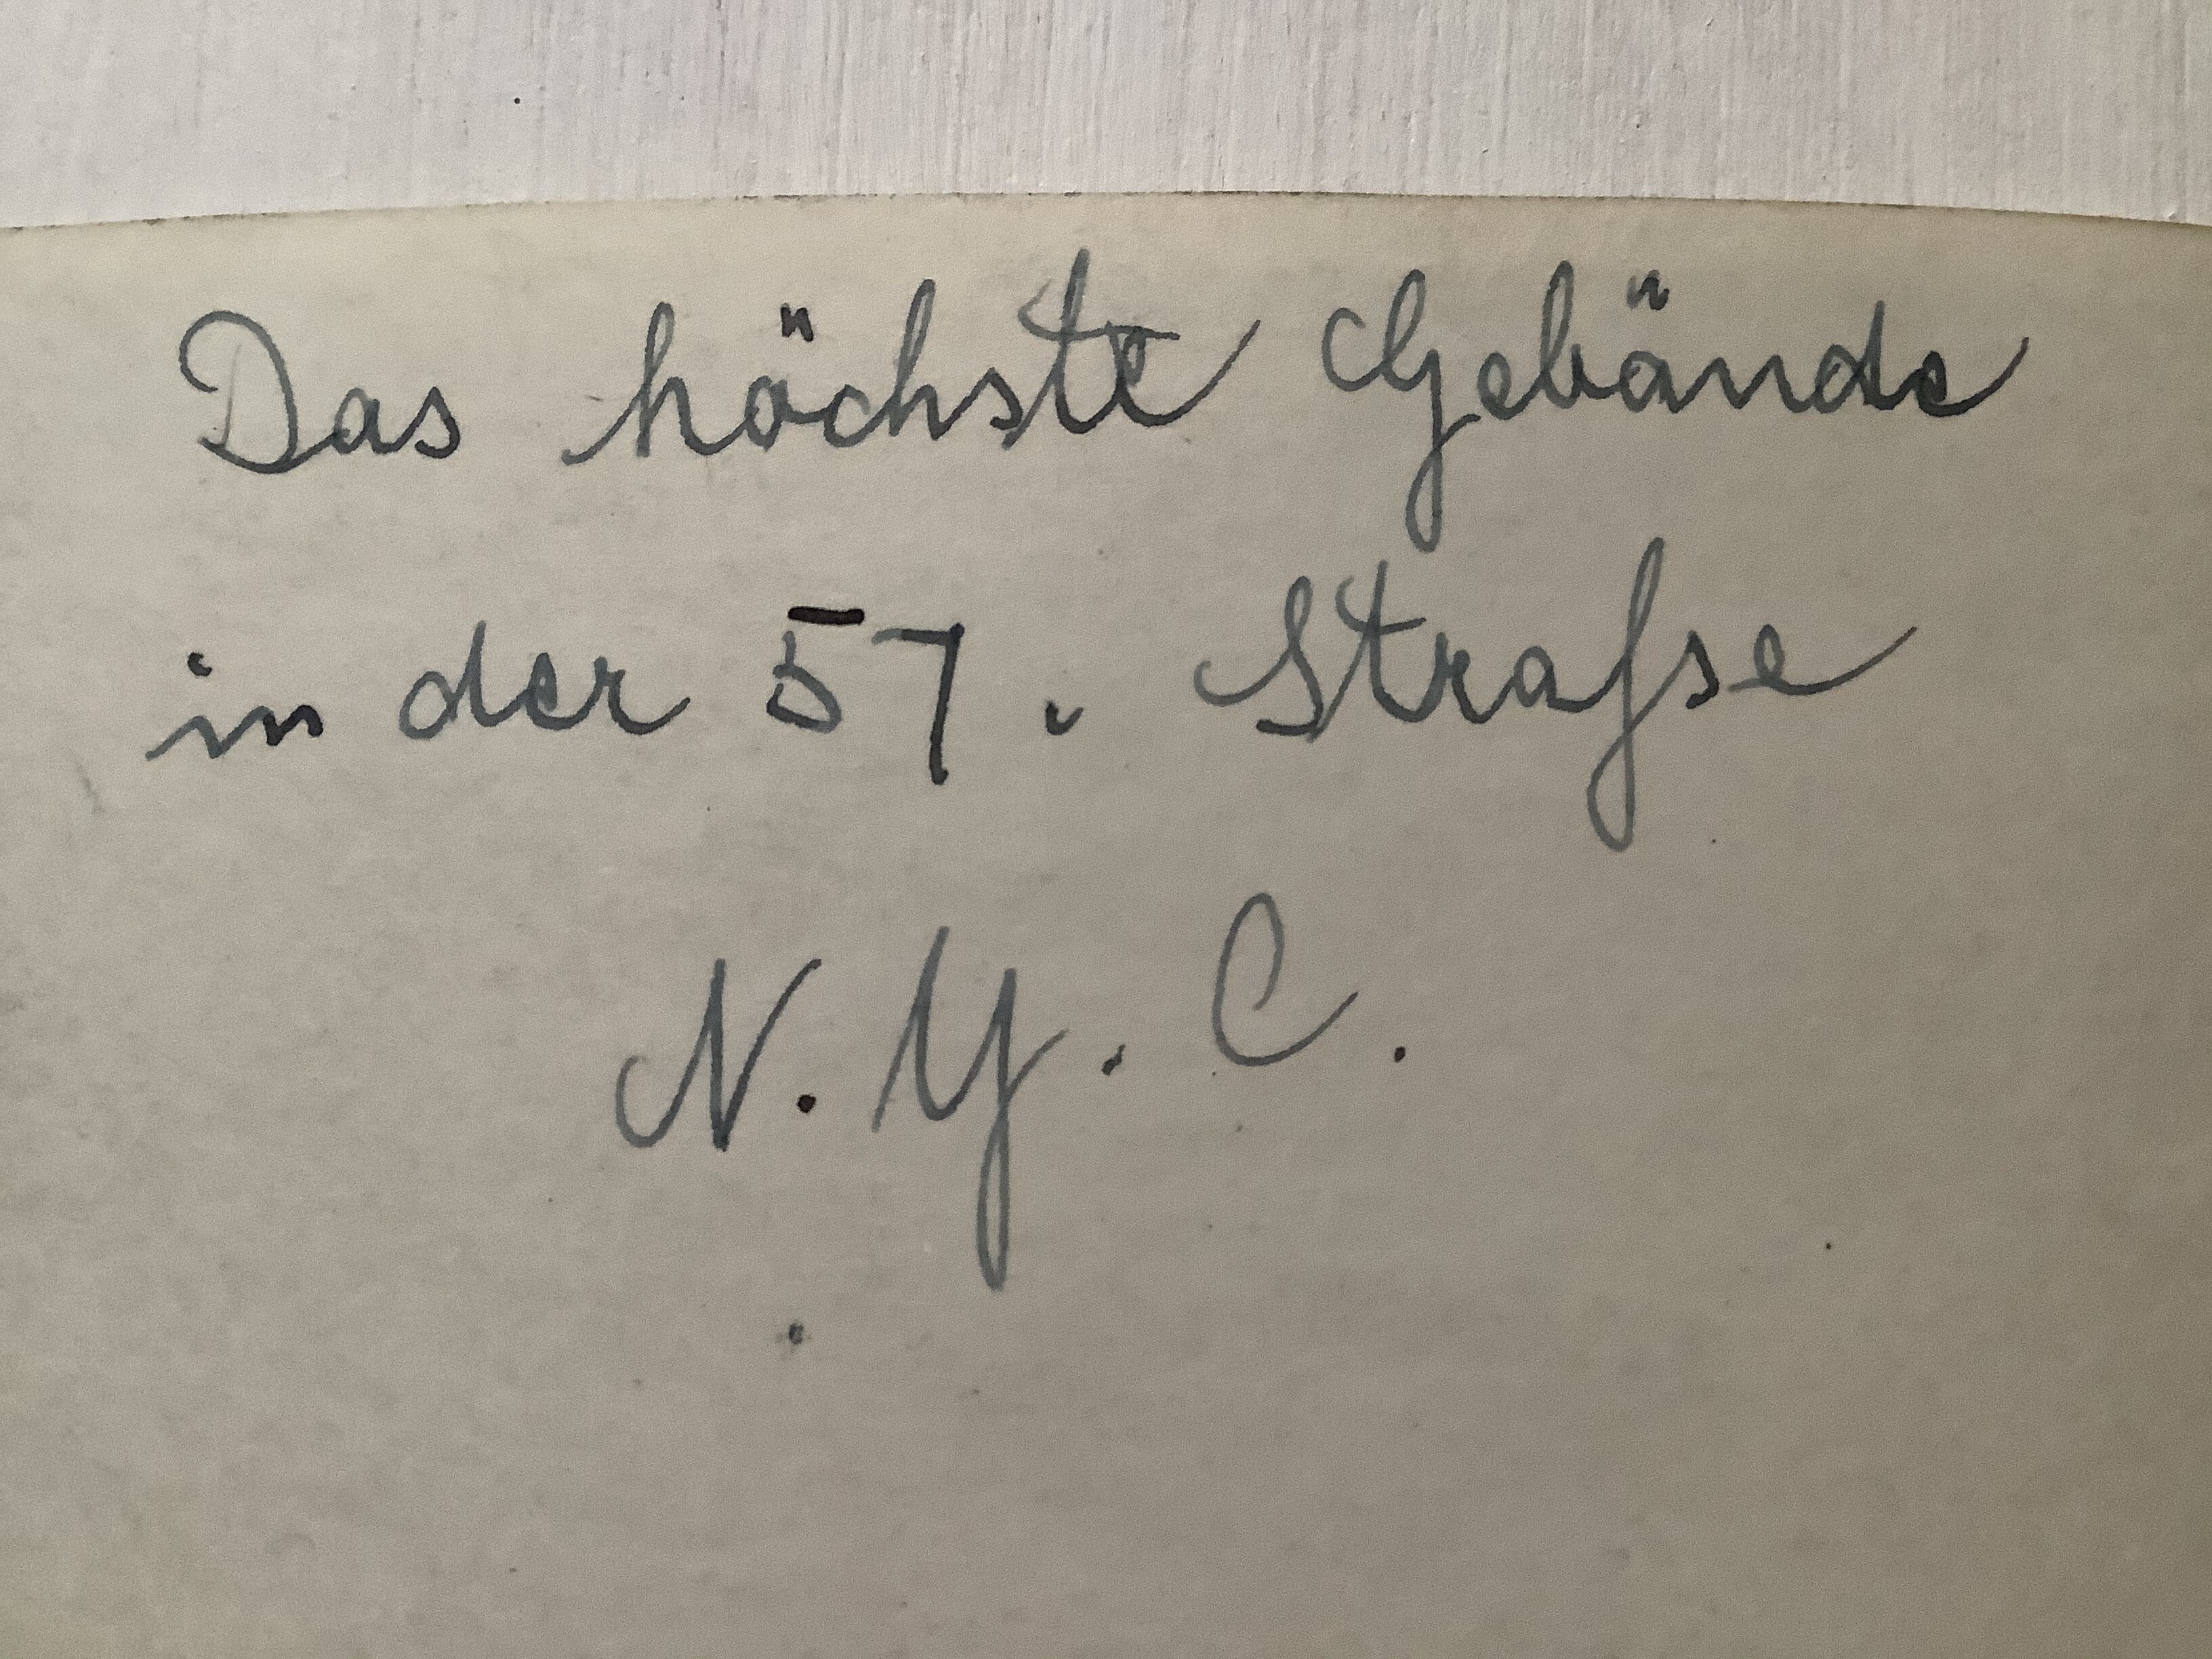 Das höchste Gebäude
in der 57. Straſse
N.Y.C.